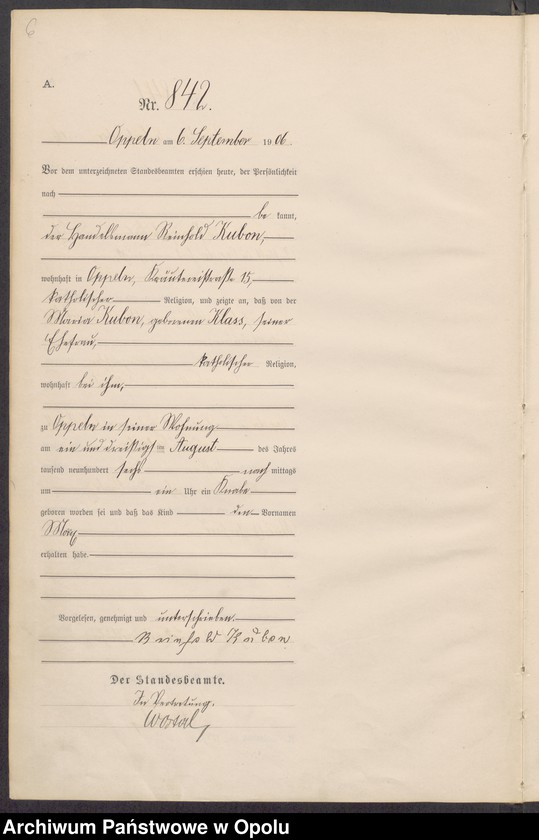 6
A.
Nr. 842.
Oppeln am 6. September 1906.
Vor dem unterzeichneten Standesbeamten erschien heute, der Persönlichkeit
nach
be kannt,
der Handelsmann Reinhold Kubon,
wohnhaft in Oppeln, Kräutereistraße 15,
katholischer Religion, und zeigte an, daß von der
Maria Kubon, geborenen Klass, seiner
Ehefrau,
katholischer Religion,
wohnhaft bei ihm,
zu Oppeln in seiner Wohnung
am ein und dreißigsten August des Jahres
tausend neunhundert sechs nach mittags
um ein Uhr ein Knabe
geboren worden sei und daß das Kind den Vornamen
Max
erhalten habe.
Vorgelesen, genehmigt und unterschrieben.
Reinhold Kubon
Der Standesbeamte.
In Vertretung.
Archiwum Państwowe w Opolu